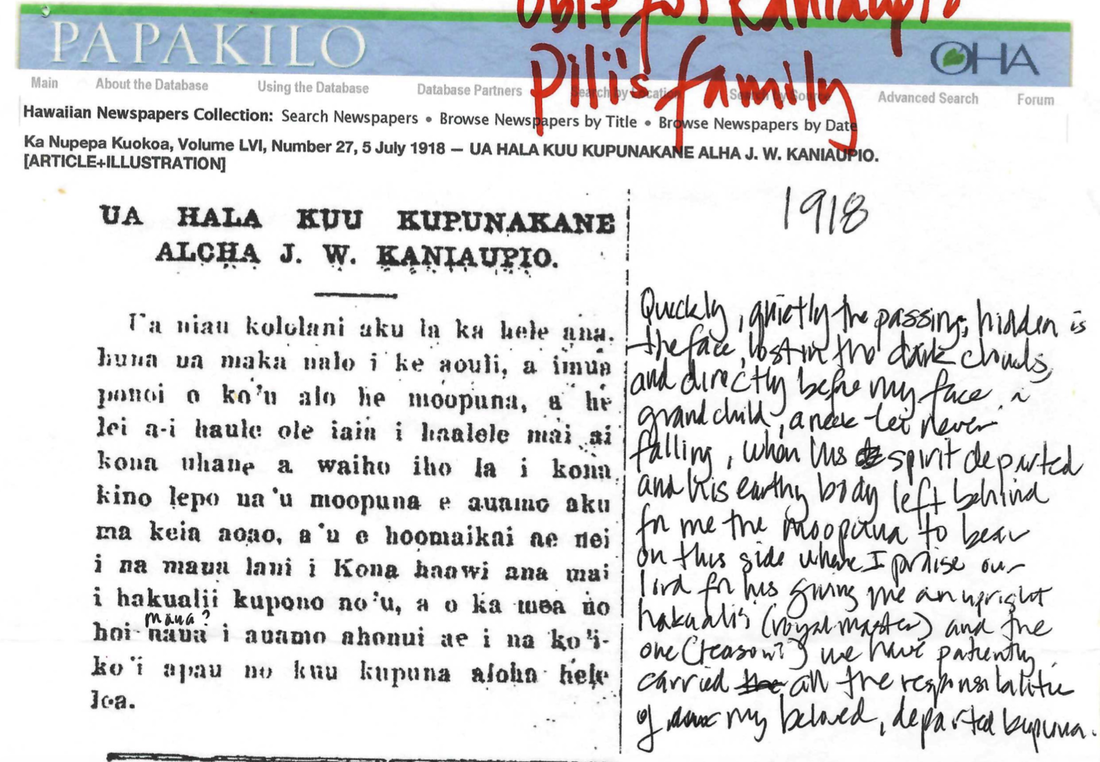 Obit for Kaniaupio
Pili's family
PAPAKILO
OHA
Main About the Database Using the Database Database Partners Search by Location Search by Source Advanced Search Forum
Hawaiian Newspapers Collection: Search Newspapers • Browse Newspapers by Title • Browse Newspapers by Date
Ka Nupepa Kuokoa, Volume LVI, Number 27, 5 July 1918 — UA HALA KUU KUPUNAKANE ALHA J. W. KANIAUPIO.
[ARTICLE+ILLUSTRATION]
UA HALA KUU KUPUNAKANE
ALCHA J. W. KANIAUPIO.
Ua niau kololani aku la ka hele ana,
huna ua maka nalo i ke aouli, a imua
ponoi o ko'u alo he moopuna, a he
lei a-i haule ole iaia i haalele mai ai
kona uhane a waiho iho la i kona
kino lepo na'u moopuna e auamo aku
ma keia aoao, a'u e hoomaikai ae nei
i na mana lani i Kona haawi ana mai
i hakualii kupono no'u, a o ka mea no
mana?
hoi naua i auamo ahonui ae i na ko'i-
ko'i apau no kuu kupuna aloha hele
loa.
1918
Quickly, quietly the passing, hidden is
the face, lost in the dark clouds,
and directly before my face a
grandchild, a neck lei never
falling, when his spirit departed
and his earthy body left behind
for me the moopuna to bear
on this side where I praise our
lord for his giving me an upright
hakualii (royal master) and the
one (reason?) we have patiently
carried all the responsibilitie
of my beloved, departed kupuna.